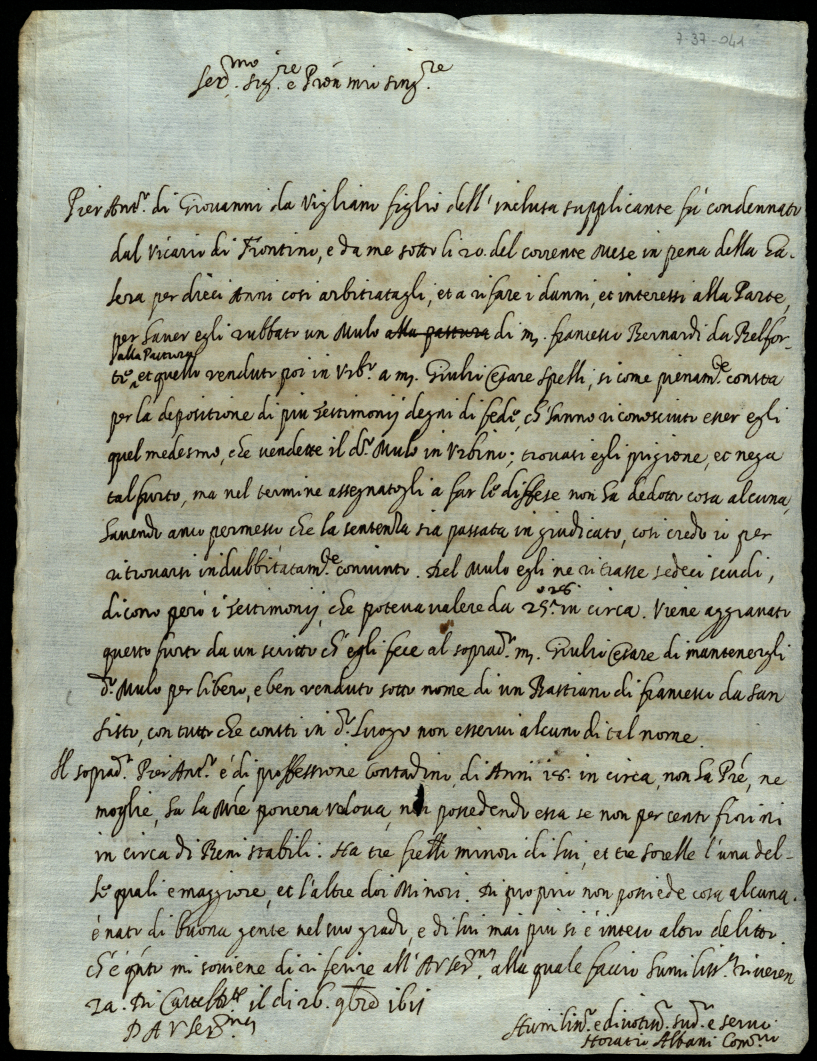 7-37-041
Ser.mo Sig.re e Pron mio sing.re
Pier Ant.o di Giovanni da Vigliano figlio dell'inclusa supplicante fu condennato
dal Vicario di Frontino, e da me sotto li 20. del corrente Mese in pena della Ga-
lera per dieci Anni così arbitratagli, et a rifare i danni, et interessi alla Parte,
per haver egli rubbato un Mulo alla pastura di m. francesco Bernardi da Belfor-
alla Pastura
te, et quello venduto poi in Urb.o a m. Giulio Cesare Spelli, si come pienam.te consta
per la depositione di più Testimonij degni di fede, ch'hanno riconosciuto esser egli
quel medesmo, che vendette il d.o Mulo in Urbino; trovasi egli prigione, et nega
tal furto, ma nel termine assegnatogli a far le diffese non ha dedotto cosa alcuna,
havendo anco permesso che la sentenza sia passata in giudicato, così credo io per
ritrovarsi indubbitatam.te convinto. Del Mulo egli ne ritrasse sedeci scudi,
o 26
dicono però i Testimonij, che poteva valere da 25. in circa. Viene aggravato
questo furto da un scritto ch'egli fece al soprad.o m. Giulio Cesare di mantenergli
d.o Mulo per libero, e ben venduto sotto nome di un Bastiano di francesco da San
Sisto, con tutto che consti in d.o Luogo non esservi alcuno di tal nome.
Il soprad.o Pier Ant.o è di proffessione Contadino, di Anni 18. in circa, non ha Pre, ne
moglie, ha la Mre povera vedova, non possedendo essa se non per cento fiorini
in circa di Beni stabili. Ha tre frelli minori di lui, et tre sorelle l'una del-
le quali è maggiore, et l'altre doi Minori. Di proprio non possiede cosa alcuna.
è nato di buona gente nel suo grado, e di lui mai più si è inteso altro delitto.
ch'è q.nto mi soviene di riferire all'A.V.Ser.ma alla quale faccio humiliss.a riveren
za. Di il di 26. 9bre 1611
D A V Ser.ma
Humiliss.o e divotiss.o sud.o e servo
Horatio Albani Com.rio